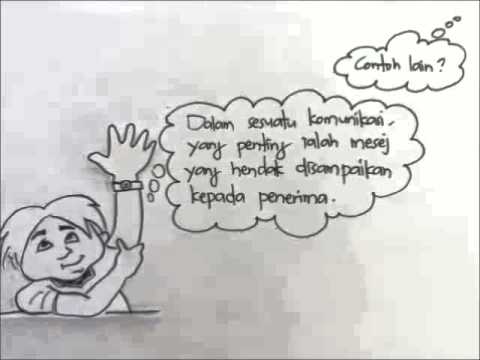 Contoh lain?
Dalam sesuatu komunikasi,
yang penting ialah mesej
yang hendak disampaikan
kepada penerima.